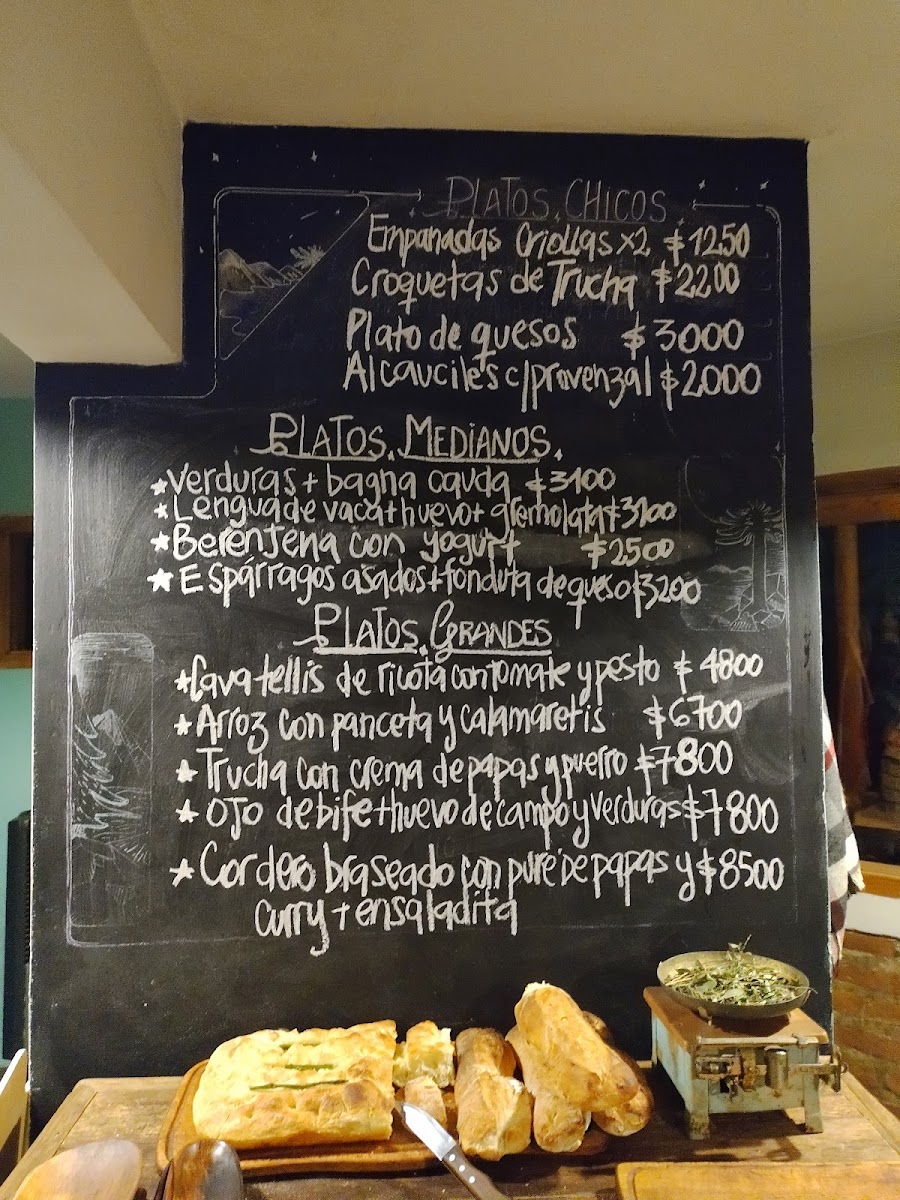 PLATOS CHICOS
Empanadas Criollas x2 $1250
Croquetas de Trucha $2200
Plato de quesos $3000
Alcauciles c/provenzal $2000
PLATOS MEDIANOS
★ Verduras + bagna cauda $3100
★ Lengua de vaca + huevo + gremolata $3100
★ Berenjena con yogurt $2500
★ Espárragos asados + fonduta de queso $3200
PLATOS GRANDES
★ Cavatellis de ricota con tomate y pesto $4800
★ Arroz con panceta y calamaretis $6700
★ Trucha con crema de papas y puerro $7800
★ OJO de bife + huevo de campo y verduras $7800
★ Cordero braseado con puré De papas y $8500
curry + ensaladita